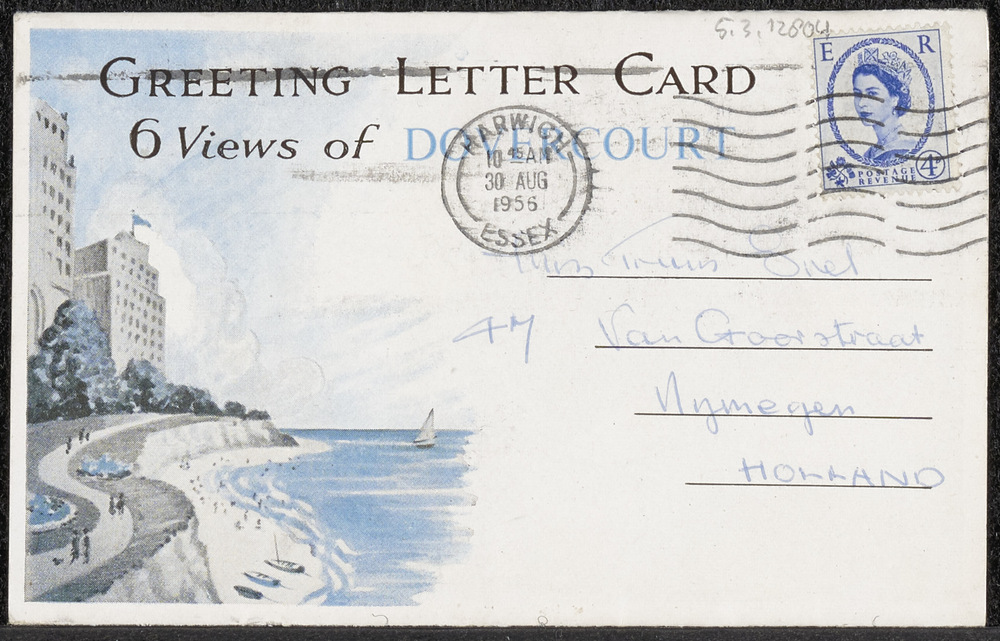 5.3.12804
GREETING LETTER CARD
6 Views of DOVERCOURT
E R
POSTAGE
REVENUE
4D
HARWICH
10 45 AM
30 AUG
1956
ESSEX
Miss Truus
47 Van Goorstraat
Nymegen
HOLLAND